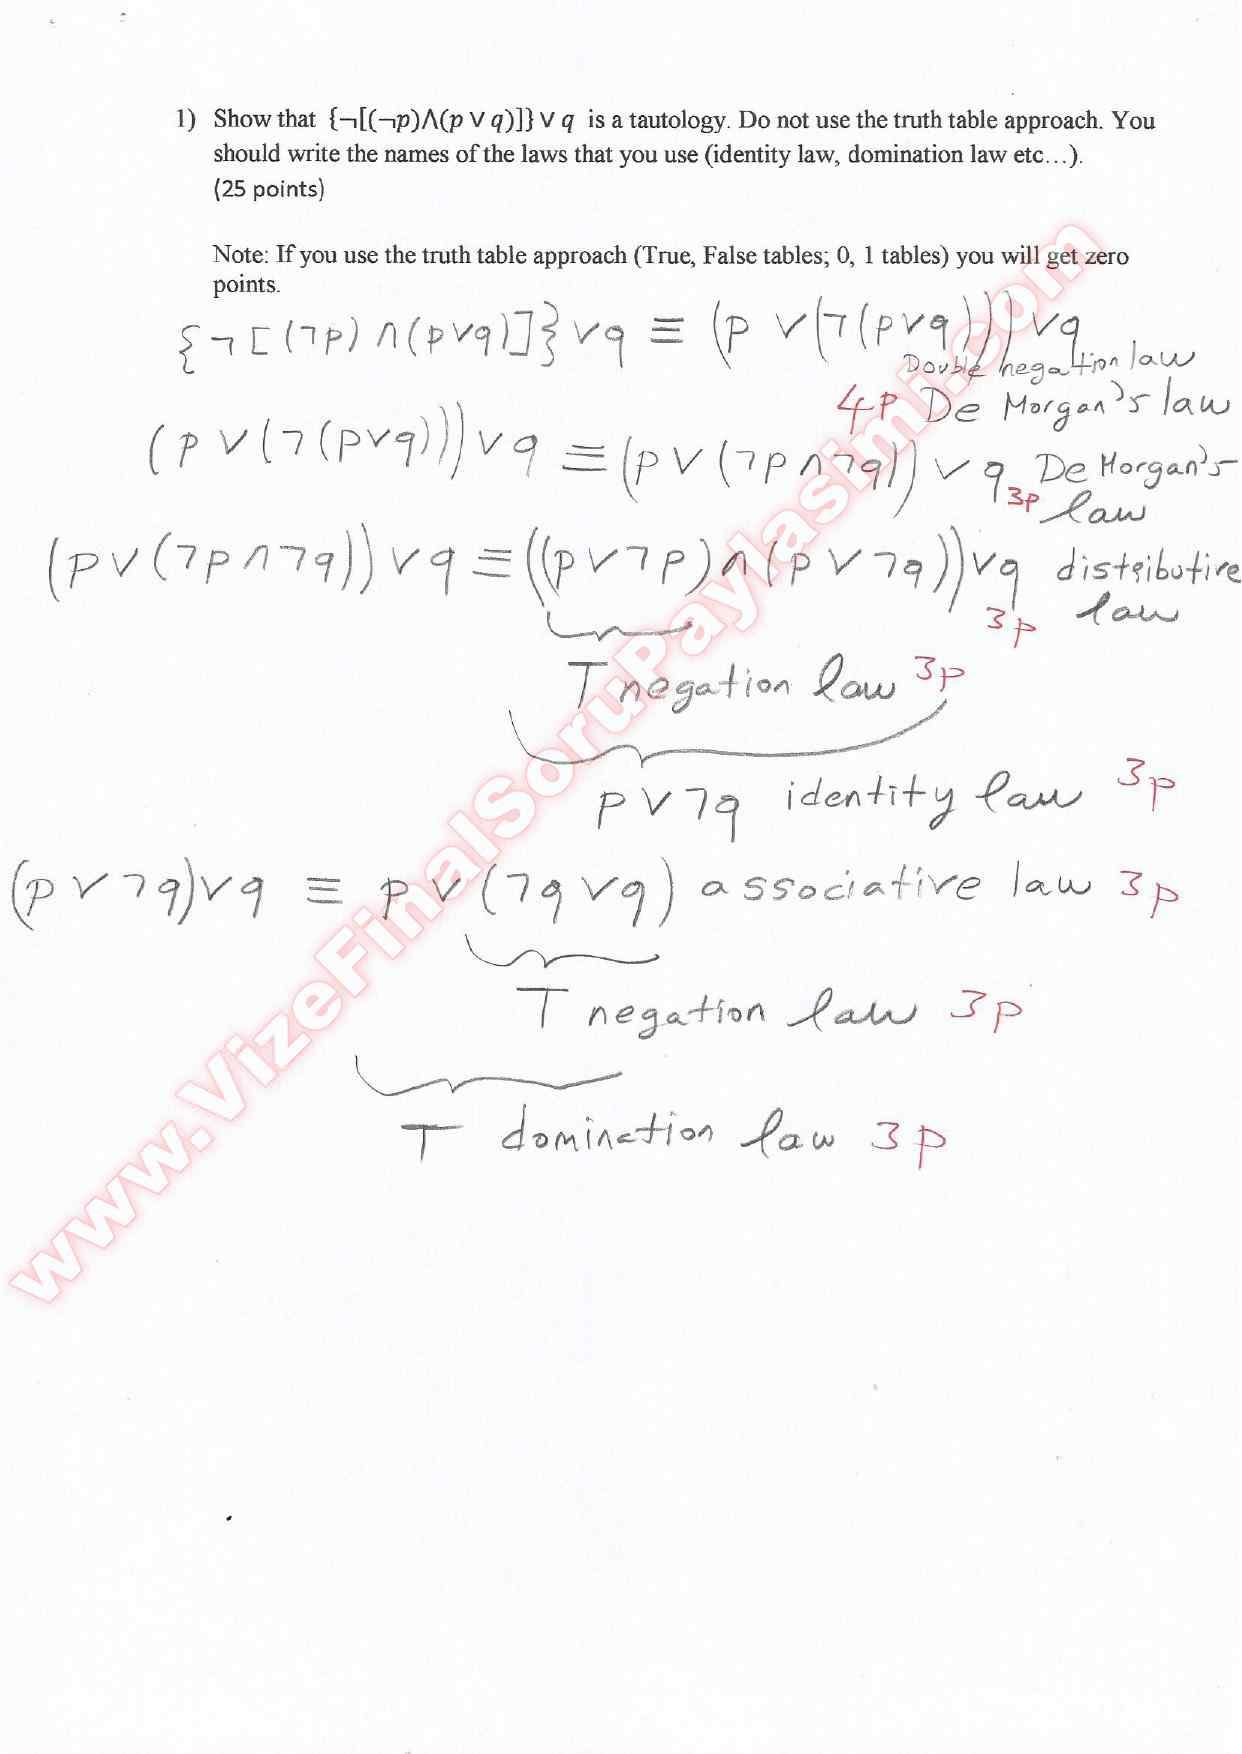 1) Show that {¬[(¬p)∧(p ∨ q)]} ∨ q is a tautology. Do not use the truth table approach. You
should write the names of the laws that you use (identity law, domination law etc…).
(25 points)
Note: If you use the truth table approach (True, False tables; 0, 1 tables) you will get zero
points.
{¬[(¬p)∧(p∨q)]}∨q ≡ (p ∨(¬(p∨q)))∨q
Double negation law
4p De Morgan's law
(p ∨(¬(p∨q)))∨q ≡ (p∨(¬p∧¬q))∨q De Morgan's
3p law
(p∨(¬p∧¬q))∨q ≡ ((p∨¬p)∧(p∨¬q))∨q distributive
3p law
T negation law 3p
p∨¬q identity law 3p
(p∨¬q)∨q ≡ p∨(¬q∨q) associative law 3p
T negation law 3p
T domination law 3p
www.VizeFinalSoruPaylasimi.com